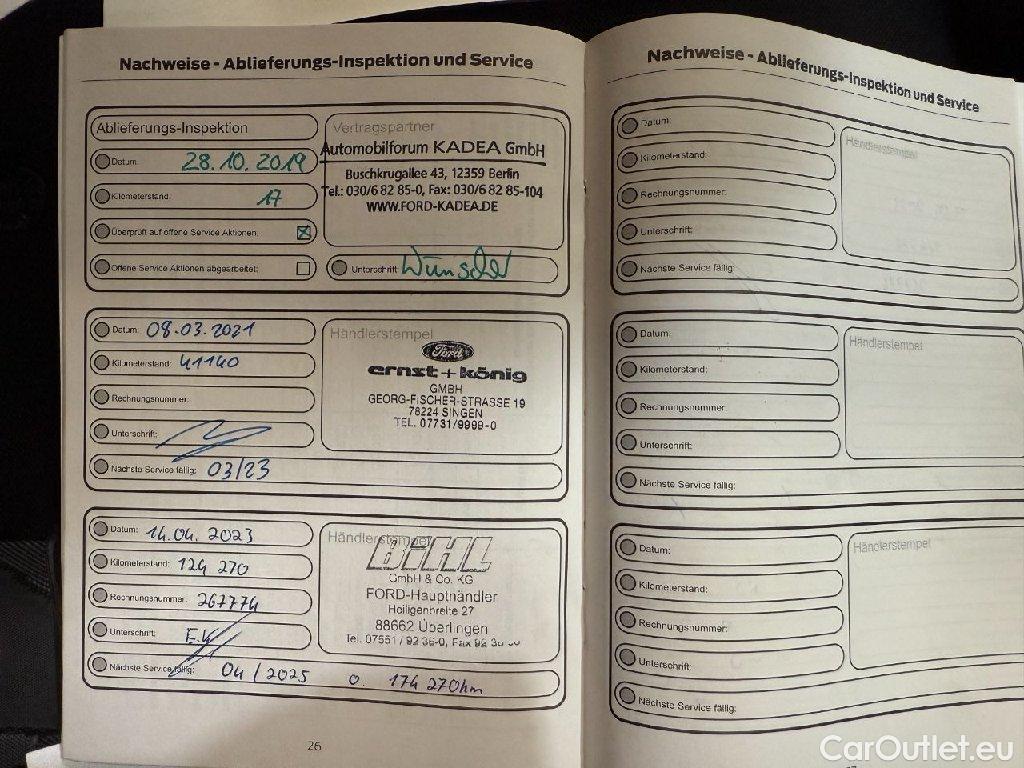 Nachweise - Ablieferungs-Inspektion und Service
Ablieferungs-Inspektion
Datum: 28.10.2019
Kilometerstand: 17
Überprüft auf offene Service Aktionen:
Offene Service Aktionen abgearbeitet:
Vertragspartner
Automobilforum KADEA GmbH
Buschkrugallee 43, 12359 Berlin
Tel.: 030/6 82 85-0, Fax: 030/6 82 85-104
WWW.FORD-KADEA.DE
Unterschrift:
Datum: 08.03.2021
Kilometerstand: 41140
Rechnungsnummer:
Unterschrift:
Nächste Service fällig: 03/23
Händlerstempel
Ford
ernst+könig
GMBH
GEORG-FISCHER-STRASSE 19
78224 SINGEN
TEL. 07731/9999-0
Datum: 14.04.2023
Kilometerstand: 124 270
Rechnungsnummer: 267774
Unterschrift:
Nächste Service fällig: 04/2025 o. 174 270km
Händlerstempel
BIHL
GmbH & Co. KG
FORD-Haupthändler
Heiligenbreite 27
88662 Überlingen
Tel. 07551 / 92 36-0, Fax 92 36
26
Nachweise - Ablieferungs-Inspektion und Service
Datum:
Kilometerstand:
Rechnungsnummer:
Unterschrift:
Nächste Service fällig:
Händlerstempel
Datum:
Kilometerstand:
Rechnungsnummer:
Unterschrift:
Nächste Service fällig:
Händlerstempel
Datum:
Kilometerstand:
Rechnungsnummer:
Unterschrift:
Nächste Service fällig:
Händlerstempel
CarOutlet.eu